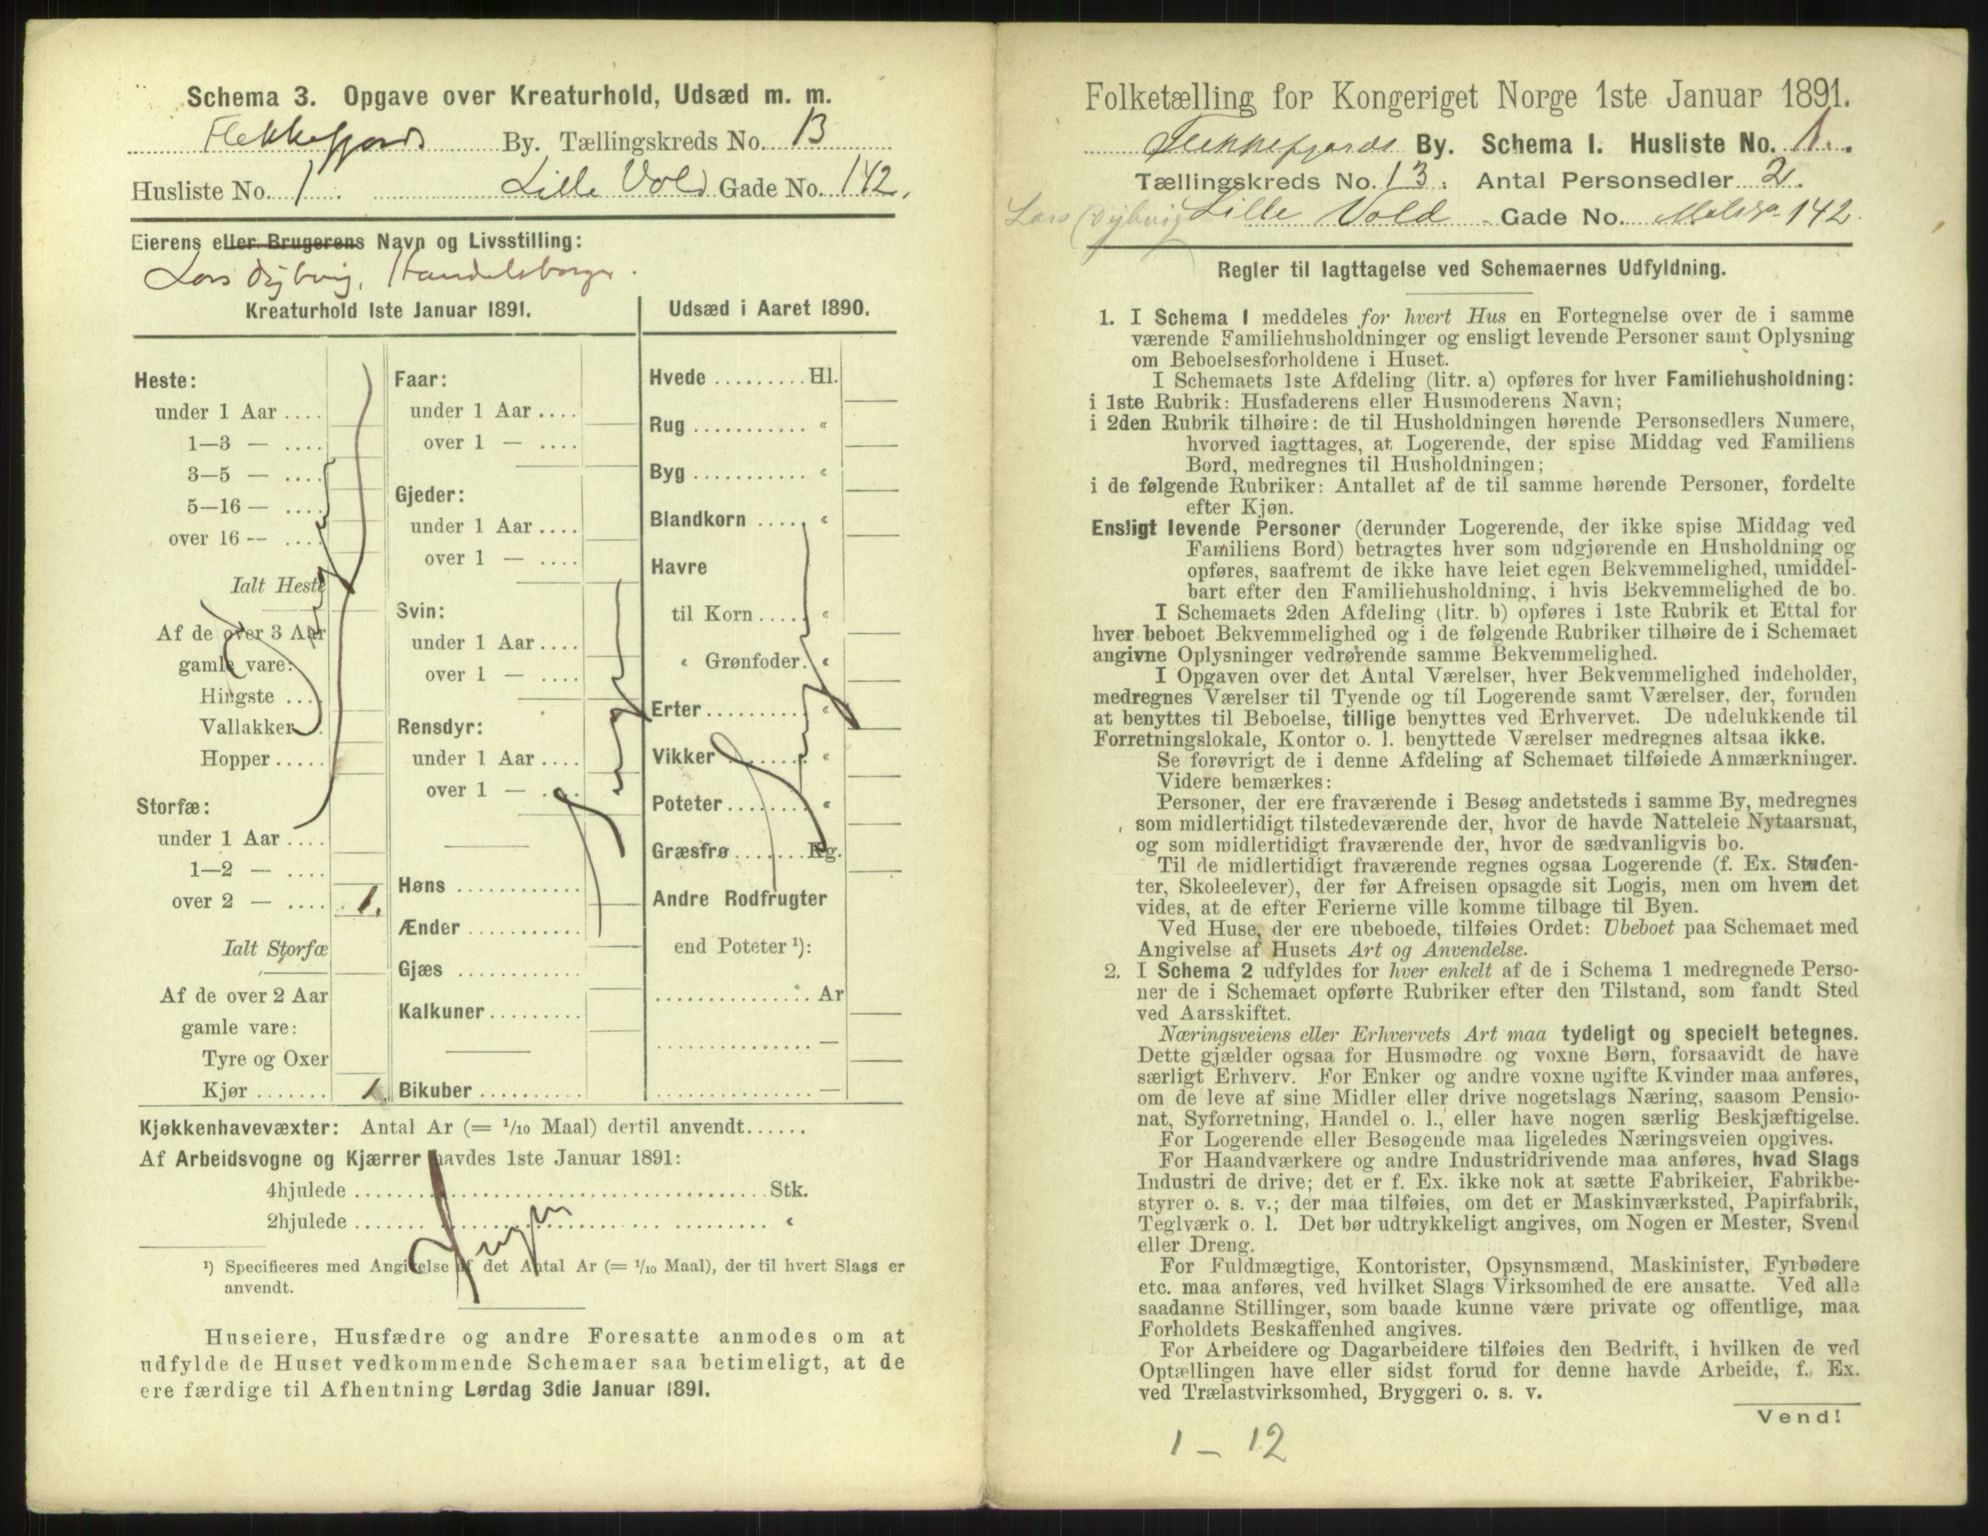 Schema 3. Opgave over Kreaturhold, Udsæd m. m.
Flekkefjords By. Tællingskreds No. 13
Husliste No. 1. Lille Vold Gade No. 142.
Eierens eller Brugerens Navn og Livsstilling:
Lars Dybvig, Handelsborger.
Kreaturhold 1ste Januar 1891.
Heste:
under 1 Aar ....
1—3 — ....
3—5 — ....
5—16 — ....
over 16 — ....
Ialt Heste
Af de over 3 Aar
gamle vare:
Hingste ....
Vallakker
Hopper .....
Storfæ:
under 1 Aar ....
1—2 — ....
over 2 — .... 1.
Ialt Storfæ
Af de over 2 Aar
gamle vare:
Tyre og Oxer
Kjør ....... 1.
Ingen
Faar:
under 1 Aar ....
over 1 — ....
Gjeder:
under 1 Aar ....
over 1 — ....
Svin:
under 1 Aar ....
over 1 — ....
Rensdyr:
under 1 Aar ....
over 1 — ....
Høns ............
Ænder ...........
Gjæs ............
Kalkuner .........
Bikuber ..........
Ingen
Udsæd i Aaret 1890.
Hvede ......... Hl.
Rug ........... “
Byg ........... “
Blandkorn ..... “
Havre
til Korn ..... “
“ Grønfoder. “
Erter .......... “
Vikker ........ “
Poteter ........ “
Græsfrø ....... Kg.
Andre Rodfrugter
end Poteter ¹):
............... Ar
............... —
............... —
Ingen
Kjøkkenhavevæxter: Antal Ar (= 1/10 Maal) dertil anvendt......
Af Arbeidsvogne og Kjærrer havdes 1ste Januar 1891:
4hjulede ........................................ Stk.
2hjulede ........................................ “
Ingen
¹) Specificeres med Angivelse af det Antal Ar (= 1/10 Maal), der til hvert Slags er
anvendt.
Huseiere, Husfædre og andre Foresatte anmodes om at
udfylde de Huset vedkommende Schemaer saa betimeligt, at de
ere færdige til Afhentning Lørdag 3die Januar 1891.
Folketælling for Kongeriget Norge 1ste Januar 1891.
Flekkefjords By. Schema 1. Husliste No. 1.
Tællingskreds No. 13. Antal Personsedler 2.
Lars Dybvig Lille Vold Gade No. 142.
Regler til Iagttagelse ved Schemaernes Udfyldning.
1. I Schema 1 meddeles for hvert Hus en Fortegnelse over de i samme
værende Familiehusholdninger og ensligt levende Personer samt Oplysning
om Beboelsesforholdene i Huset.
I Schemaets 1ste Afdeling (litr. a) opføres for hver Familiehusholdning:
i 1ste Rubrik: Husfaderens eller Husmoderens Navn;
i 2den Rubrik tilhøire: de til Husholdningen hørende Personsedlers Numere,
hvorved iagttages, at Logerende, der spise Middag ved Familiens
Bord, medregnes til Husholdningen;
i de følgende Rubriker: Antallet af de til samme hørende Personer, fordelte
efter Kjøn.
Ensligt levende Personer (derunder Logerende, der ikke spise Middag ved
Familiens Bord) betragtes hver som udgjørende en Husholdning og
opføres, saafremt de ikke have leiet egen Bekvemmelighed, umiddel-
bart efter den Familiehusholdning, i hvis Bekvemmelighed de bo.
I Schemaets 2den Afdeling (litr. b) opføres i 1ste Rubrik et Ettal for
hver beboet Bekvemmelighed og i de følgende Rubriker tilhøire de i Schemaet
angivne Oplysninger vedrørende samme Bekvemmelighed.
I Opgaven over det Antal Værelser, hver Bekvemmelighed indeholder,
medregnes Værelser til Tyende og til Logerende samt Værelser, der, foruden
at benyttes til Beboelse, tillige benyttes ved Erhvervet. De udelukkende til
Forretningslokale, Kontor o. l. benyttede Værelser medregnes altsaa ikke.
Se forøvrigt de i denne Afdeling af Schemaet tilføiede Anmærkninger.
Videre bemærkes:
Personer, der ere fraværende i Besøg andetsteds i samme By, medregnes
som midlertidigt tilstedeværende der, hvor de havde Natteleie Nytaarsnat,
og som midlertidigt fraværende der, hvor de sædvanligvis bo.
Til de midlertidigt fraværende regnes ogsaa Logerende (f. Ex. Studen-
ter, Skoleelever), der før Afreisen opsagde sit Logis, men om hvem det
vides, at de efter Ferierne ville komme tilbage til Byen.
Ved Huse, der ere ubeboede, tilføies Ordet: Ubeboet paa Schemaet med
Angivelse af Husets Art og Anvendelse.
2. I Schema 2 udfyldes for hver enkelt af de i Schema 1 medregnede Perso-
ner de i Schemaet opførte Rubriker efter den Tilstand, som fandt Sted
ved Aarsskiftet.
Næringsveiens eller Erhvervets Art maa tydeligt og specielt betegnes.
Dette gjælder ogsaa for Husmødre og voxne Børn, forsaavidt de have
særligt Erhverv. For Enker og andre voxne ugifte Kvinder maa anføres,
om de leve af sine Midler eller drive nogetslags Næring, saasom Pensio-
nat, Syforretning, Handel o. l., eller have nogen særlig Beskjæftigelse.
For Logerende eller Besøgende maa ligeledes Næringsveien opgives.
For Haandværkere og andre Industridrivende maa anføres, hvad Slags
Industri de drive; det er f. Ex. ikke nok at sætte Fabrikeier, Fabrikbe-
styrer o. s. v.; der maa tilføies, om det er Maskinværksted, Papirfabrik,
Teglværk o. l. Det bør udtrykkeligt angives, om Nogen er Mester, Svend
eller Dreng.
For Fuldmægtige, Kontorister, Opsynsmænd, Maskinister, Fyrbødere
etc. maa anføres, ved hvilket Slags Virksomhed de ere ansatte. Ved alle
saadanne Stillinger, som baade kunne være private og offentlige, maa
Forholdets Beskaffenhed angives.
For Arbeidere og Dagarbeidere tilføies den Bedrift, i hvilken de ved
Optællingen have eller sidst forud for denne havde Arbeide, f. Ex.
ved Trælastvirksomhed, Bryggeri o. s. v.
Vend!
1 – 12